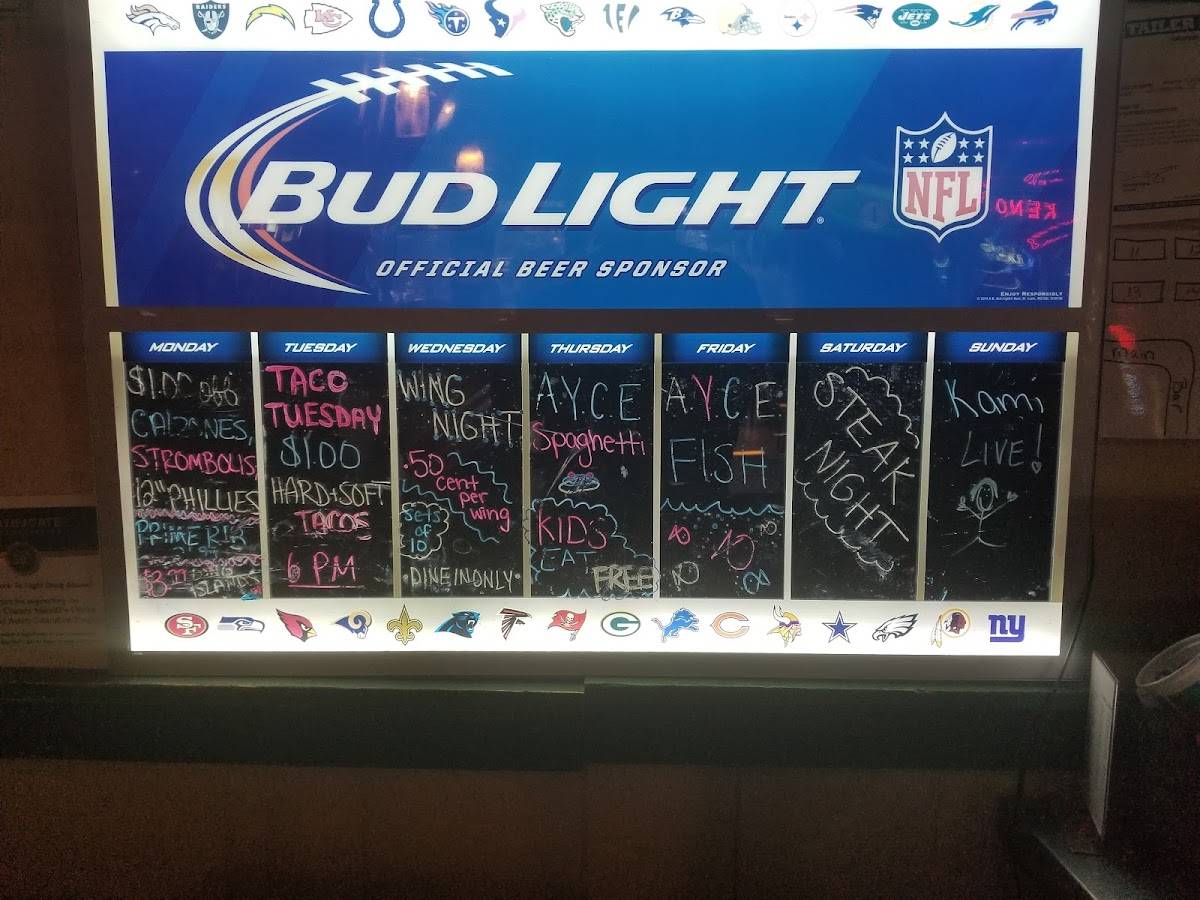 RAIDERS
JETS
BUD LIGHT
OFFICIAL BEER SPONSOR
NFL
KENO
ENJOY RESPONSIBLY
MONDAY
$1.00 off
CALZONES,
STROMBOLIS,
12" PHILLIES
PRIME RIB
ISLANDS
TUESDAY
TACO
TUESDAY
$1.00
HARD+SOFT
TACOS
6 PM
WEDNESDAY
WING
NIGHT
.50
cent
per
wing
Sets
of
10
•DINE IN ONLY•
THURSDAY
A.Y.C.E
Spaghetti
KIDS
EAT
FREE
FRIDAY
A.Y.C.E
FISH
SATURDAY
STEAK
NIGHT
SUNDAY
Kami
LIVE!
SF
G
C
ny